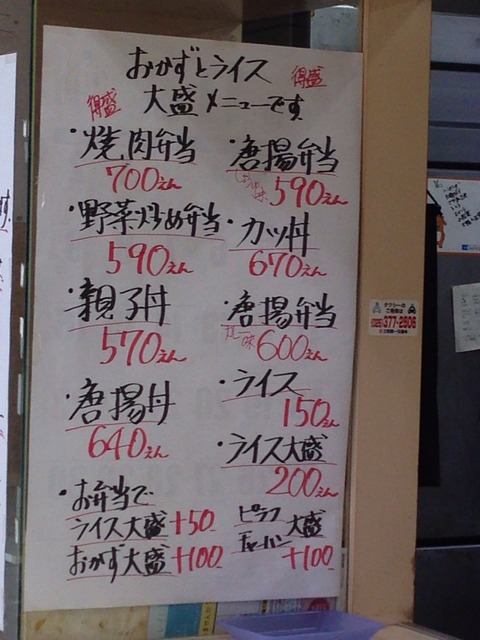 おかずとライス
得盛 大盛メニューです 得盛
・焼肉弁当
700えん
・唐揚弁当
しょうゆ味 590えん
・野菜炒め弁当
590えん
・カツ丼
670えん
・親子丼
570えん
・唐揚弁当
カレー味 600えん
・唐揚丼
640えん
・ライス
150えん
・ライス大盛
200えん
・お弁当で
ライス大盛+50
おかず大盛+100
ピラフ
チャーハン 大盛
+100
タクシーの
ご用命は
377-2606